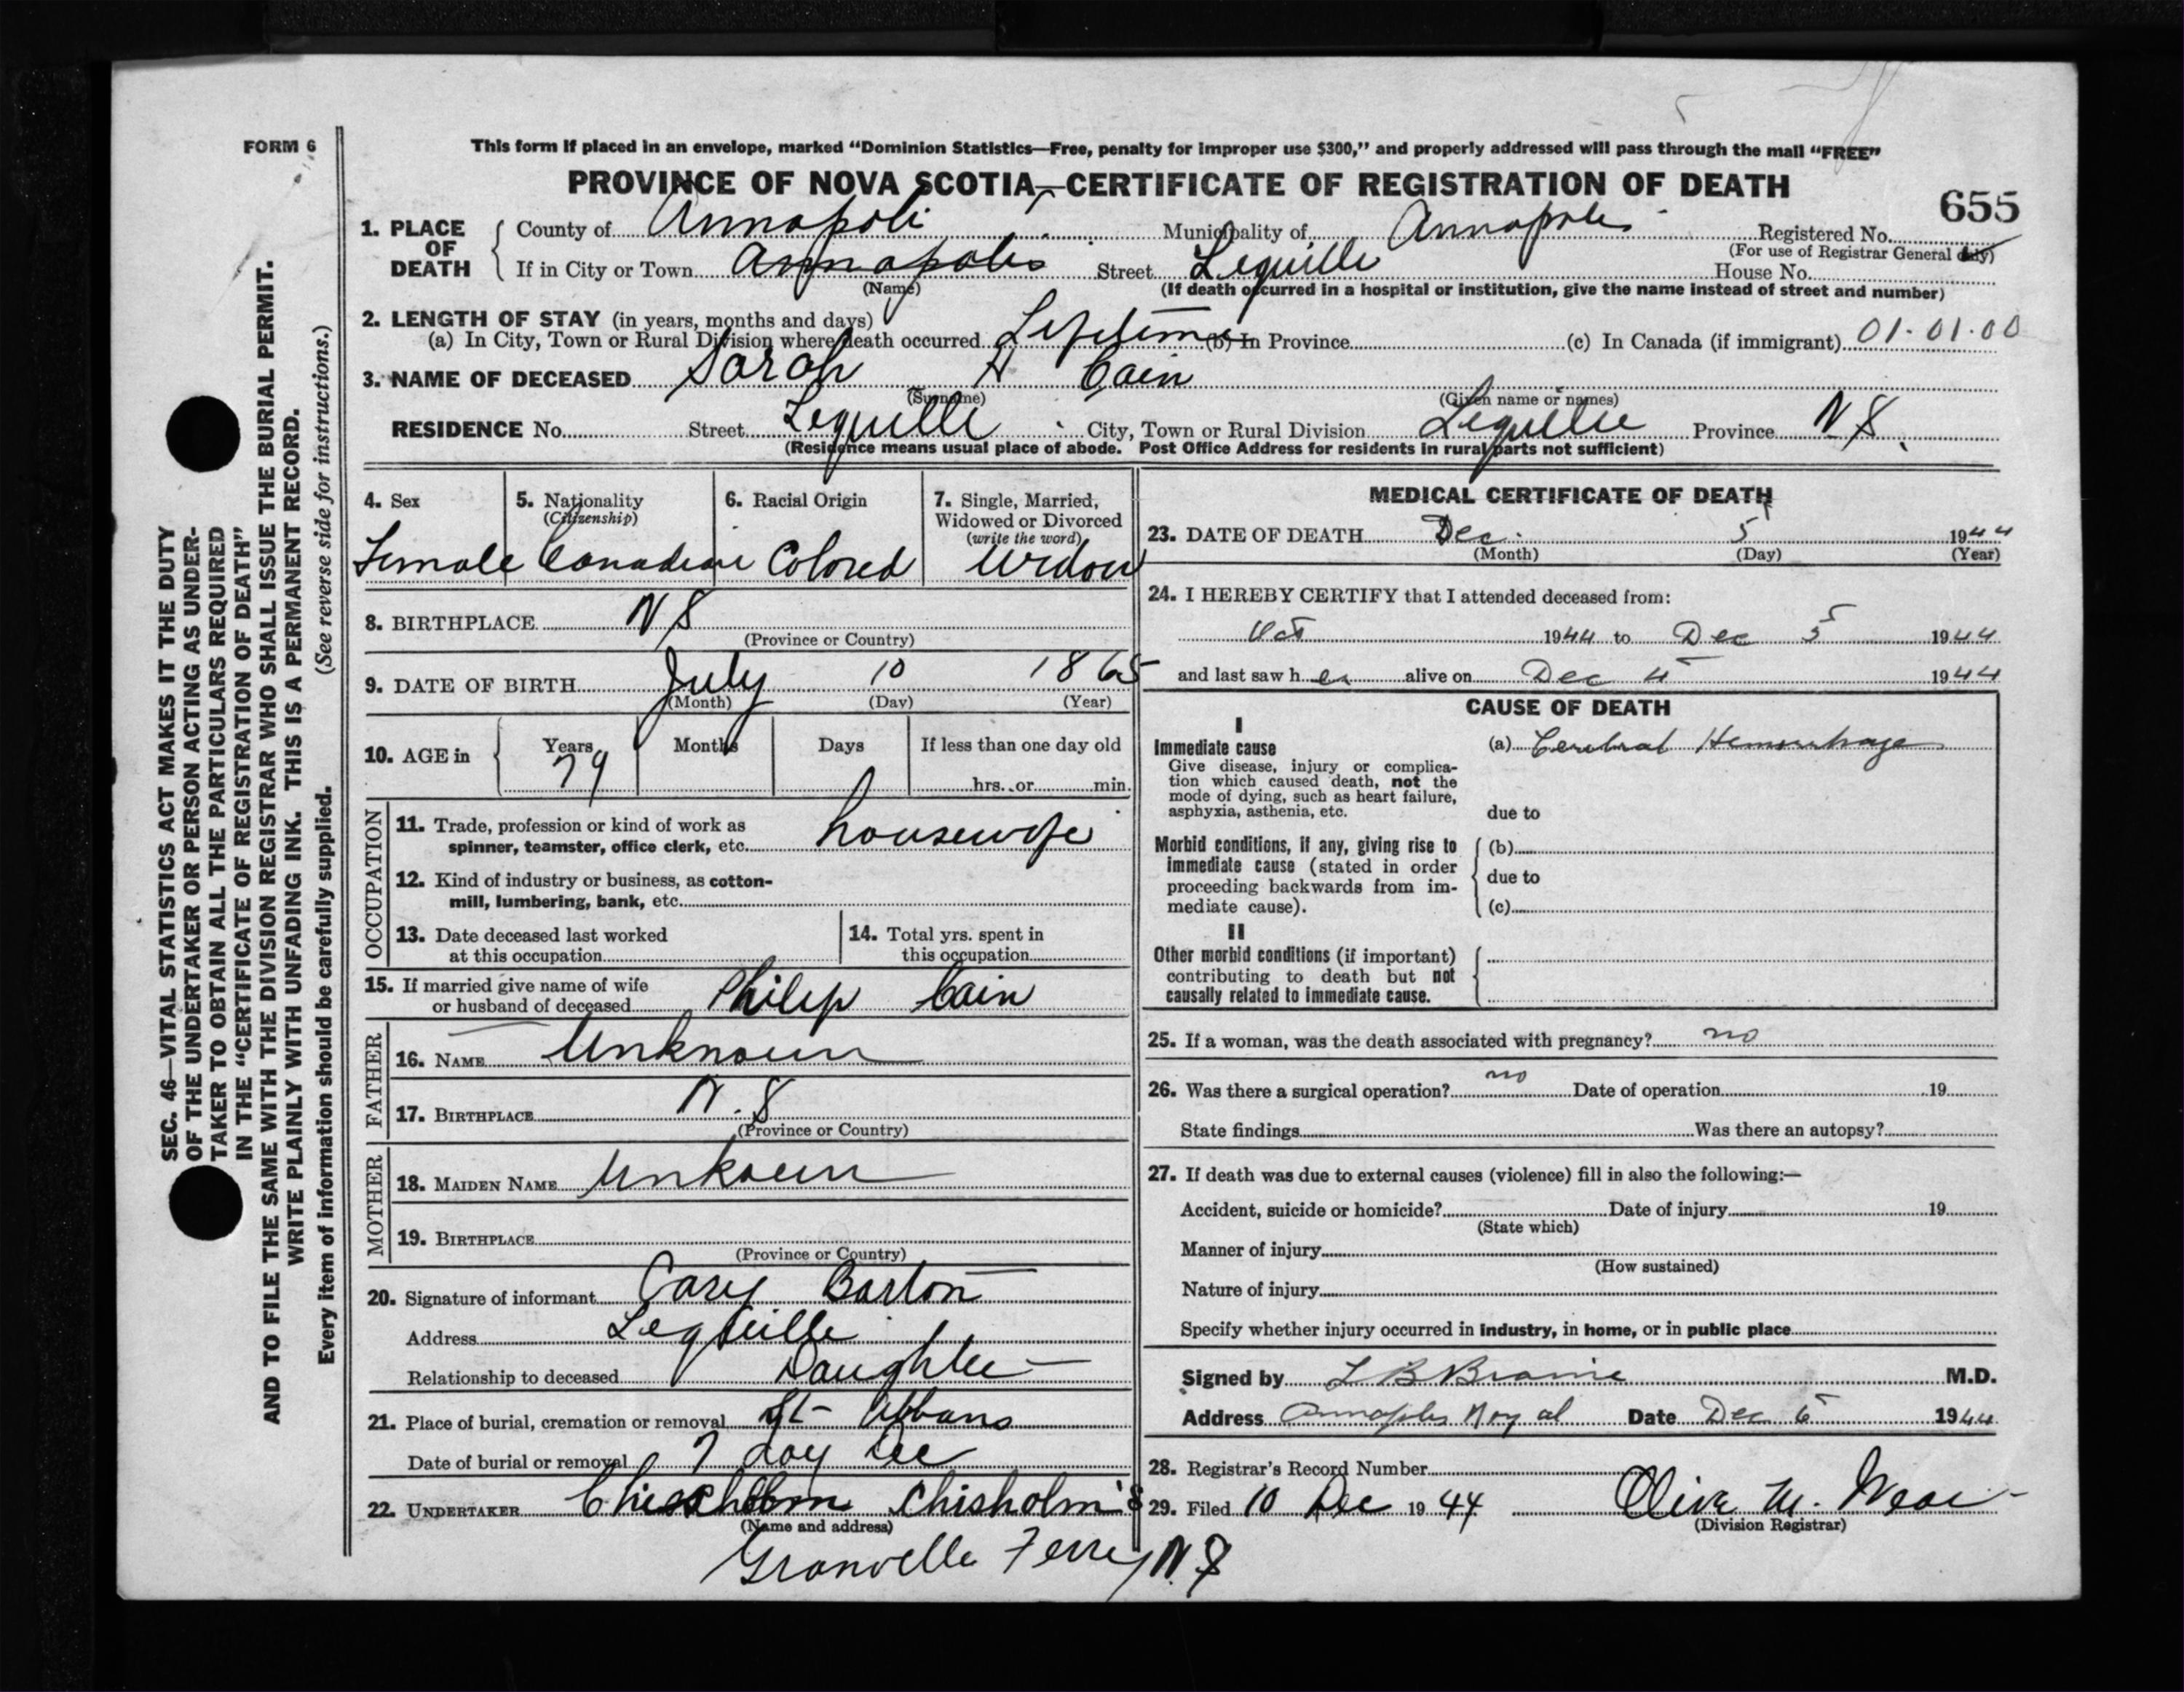 FORM 6
This form if placed in an envelope, marked "Dominion Statistics—Free, penalty for improper use $300," and properly addressed will pass through the mail "FREE"
PROVINCE OF NOVA SCOTIA—CERTIFICATE OF REGISTRATION OF DEATH
655
1. PLACE OF DEATH
County of Annapoli Municipality of Annapolis Registered No.
(For use of Registrar General only)
If in City or Town Annapolis Street Lequille House No.
(Name) (If death occurred in a hospital or institution, give the name instead of street and number)
2. LENGTH OF STAY (in years, months and days)
(a) In City, Town or Rural Division where death occurred Lifetime (b) In Province (c) In Canada (if immigrant) 01·01·00
3. NAME OF DECEASED Sarah H Cain
(Surname) (Given name or names)
RESIDENCE No. Street Lequille City, Town or Rural Division Lequille Province N S
(Residence means usual place of abode. Post Office Address for residents in rural parts not sufficient)
4. Sex
Female
5. Nationality
(Citizenship)
Canadian
6. Racial Origin
Colored
7. Single, Married,
Widowed or Divorced
(write the word)
Widow
8. BIRTHPLACE N S
(Province or Country)
9. DATE OF BIRTH July 10 1865
(Month) (Day) (Year)
10. AGE in Years Months Days If less than one day old
79 hrs. or min.
OCCUPATION
11. Trade, profession or kind of work as
spinner, teamster, office clerk, etc. housewife
12. Kind of industry or business, as cotton-
mill, lumbering, bank, etc.
13. Date deceased last worked
at this occupation
14. Total yrs. spent in
this occupation
15. If married give name of wife
or husband of deceased Philip Cain
FATHER
16. NAME Unknown
17. BIRTHPLACE N. S
(Province or Country)
MOTHER
18. MAIDEN NAME Unkown
19. BIRTHPLACE
(Province or Country)
20. Signature of informant Barton
Address Lequille
Relationship to deceased Daughter
21. Place of burial, cremation or removal St
Date of burial or removal 7 day Dec
22. UNDERTAKER Chisholm's
(Name and address)
Granville Ferry N. S
MEDICAL CERTIFICATE OF DEATH
23. DATE OF DEATH Dec. 5 1944
(Month) (Day) (Year)
24. I HEREBY CERTIFY that I attended deceased from:
Oct 1944 to Dec 5 1944
and last saw her alive on Dec 4 1944
CAUSE OF DEATH
I
Immediate cause
Give disease, injury or complica-
tion which caused death, not the
mode of dying, such as heart failure,
asphyxia, asthenia, etc.
(a) Cerebral Hemorrhage
due to
Morbid conditions, if any, giving rise to
immediate cause (stated in order
proceeding backwards from im-
mediate cause).
(b)
due to
(c)
II
Other morbid conditions (if important)
contributing to death but not
causally related to immediate cause.
25. If a woman, was the death associated with pregnancy? no
26. Was there a surgical operation? no Date of operation 19
State findings Was there an autopsy?
27. If death was due to external causes (violence) fill in also the following:—
Accident, suicide or homicide? Date of injury 19
(State which)
Manner of injury
(How sustained)
Nature of injury
Specify whether injury occurred in industry, in home, or in public place
Signed by L B Braine M.D.
Address Annapolis Royal Date Dec 6 1944
28. Registrar's Record Number
29. Filed 10 Dec 1944 Olive M.
(Division Registrar)
SEC. 46—VITAL STATISTICS ACT MAKES IT THE DUTY
OF THE UNDERTAKER OR PERSON ACTING AS UNDER-
TAKER TO OBTAIN ALL THE PARTICULARS REQUIRED
IN THE "CERTIFICATE OF REGISTRATION OF DEATH"
AND TO FILE THE SAME WITH THE DIVISION REGISTRAR WHO SHALL ISSUE THE BURIAL PERMIT.
WRITE PLAINLY WITH UNFADING INK. THIS IS A PERMANENT RECORD.
Every item of information should be carefully supplied. (See reverse side for instructions.)